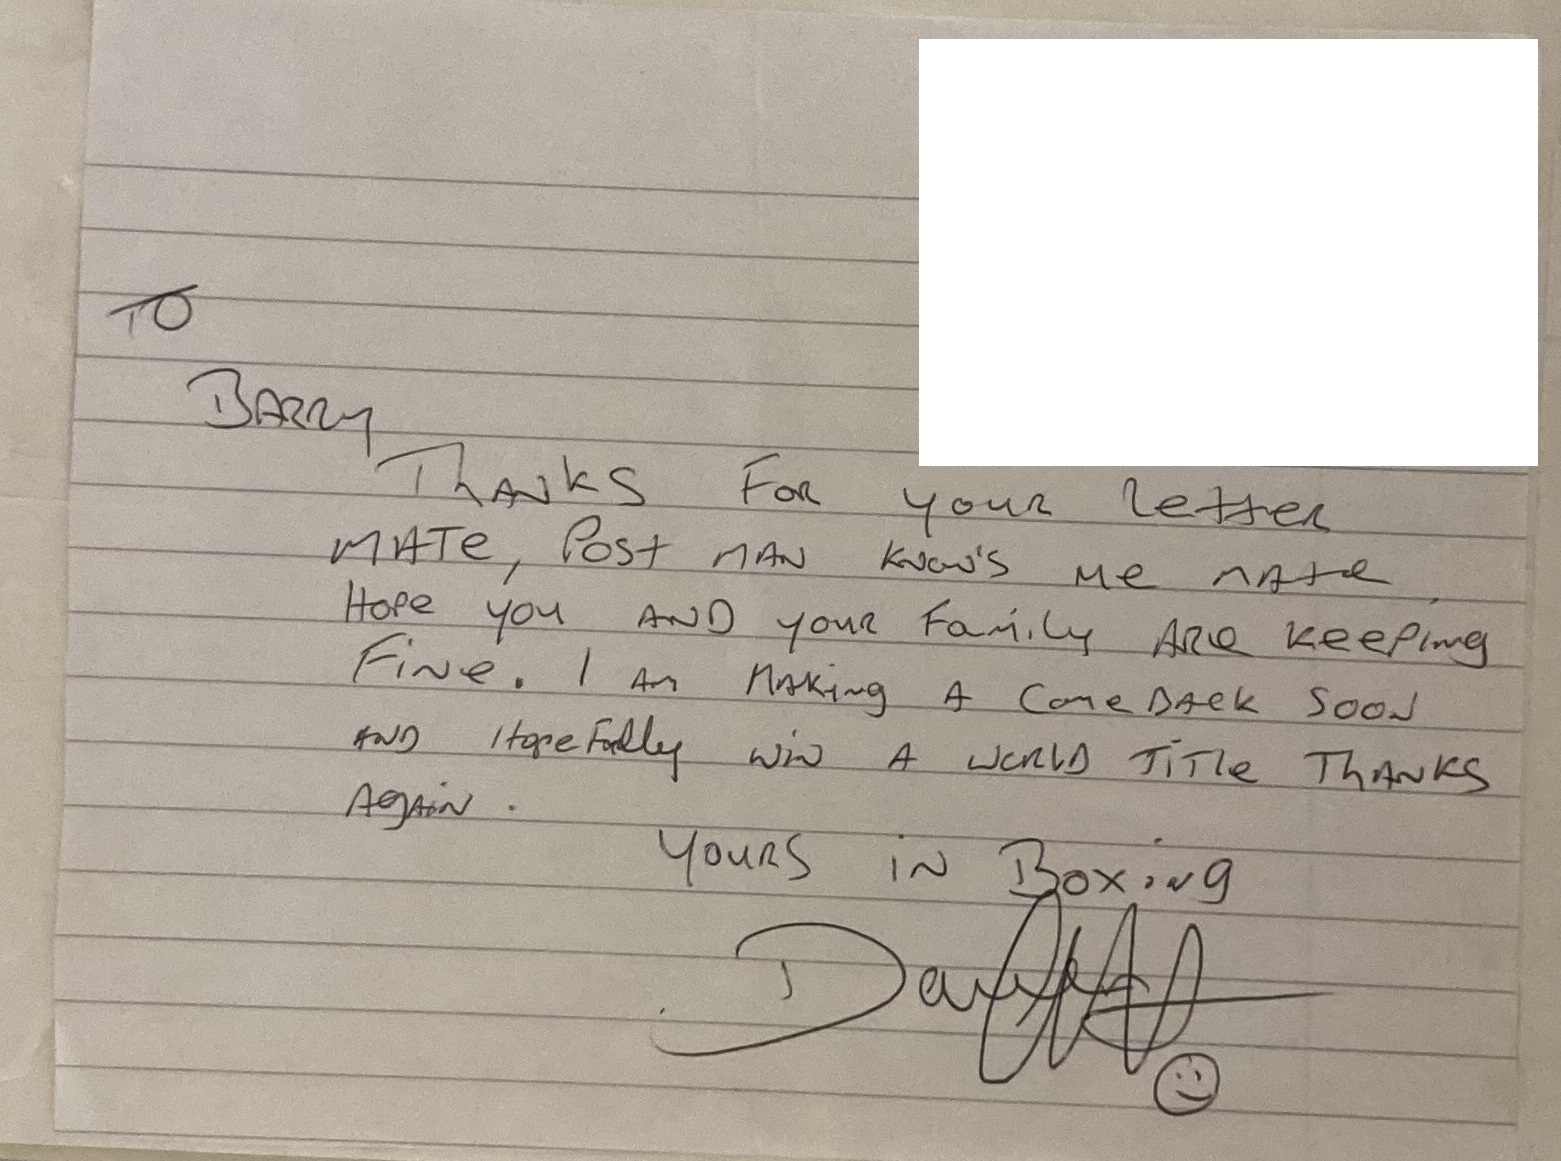 TO
BARRY
THANKS FOR your Letter
MATe, Post MAN KNOW'S Me MATe
Hope you AND your Family ARe Keeping
Fine. I AM MAKing A ComeBAck SOON
AND HopeFully WiN A WORLD TiTle THANKS
AgAiN.
YOURS iN Boxing